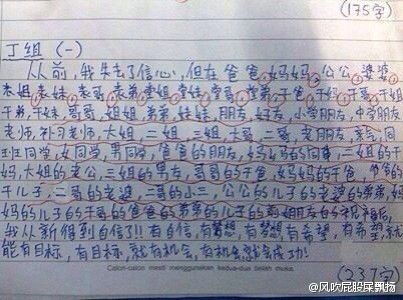 (175字)
丁组 (一)
从前，我失去了信心，但在爸爸，妈妈，公公，婆婆
表姐，表妹，表哥，表弟，堂姐，堂妹，堂哥，堂弟，干爸，干妈，干哥，干姐
干弟，干妹，哥哥，姐姐，弟弟，妹妹，朋友，好友，小学朋友，中学朋友
老师，补习老师，大姐，二姐，三姐，大哥，二哥，老朋友，亲戚，同
班同学，女同学，男同学，爸爸的朋友，妈妈的同事，二姐的干
妈，大姐的老公，三姐的男友，哥哥的干爸，妈妈的干爸，爷爷的
干儿子，二哥的老婆，二哥的小三，公公的儿子的老婆的弟弟，妈
妈的儿子的干哥的爸爸的弟弟的儿子的前女朋友的祝福后，
我从新得到自信了!! 有自信，有梦想，有梦想，有希望，有希望，就
能有目标，有目标，就有机会，有机会就会成功!
Calon-calon mesti menggunakan kedua-dua belah muka.
(237字)
@风吹屁股屎飘扬